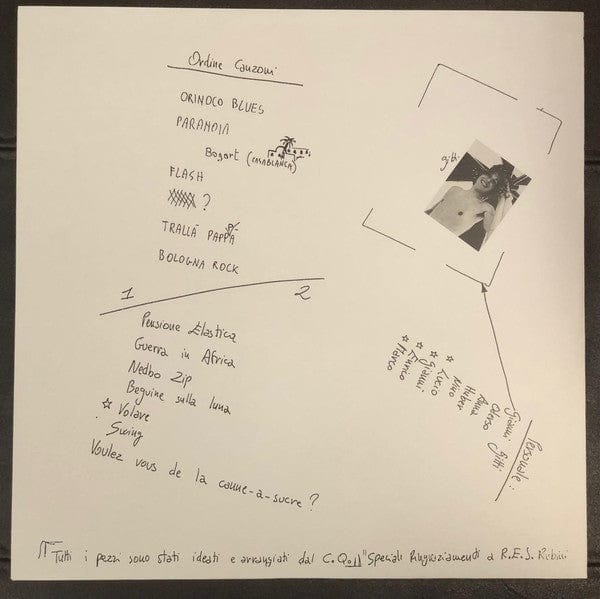 Ordine Canzoni
ORINOCO BLUES
PARANOIA
Bogart (CASABLANCA)
FLASH
?
TRALLÀ PAPPA
BOLOGNA ROCK
1 2
Pensione Elastica
Guerra in Africa
Nedbo Zip
Beguine sulla luna
☆ Volare
Swing
Voulez vous de la canne-a-sucre?
gitti
☆ Marco
Enrico
☆ Gianni
☆ Lucio
Nino
Huber
Anna
Oderso
Gianni Gitti
Personale:
Tutti i pezzi sono stati ideati e arrangiati dal C.Q.. "Speciali Ringraziamenti a R.E.S. Rubini